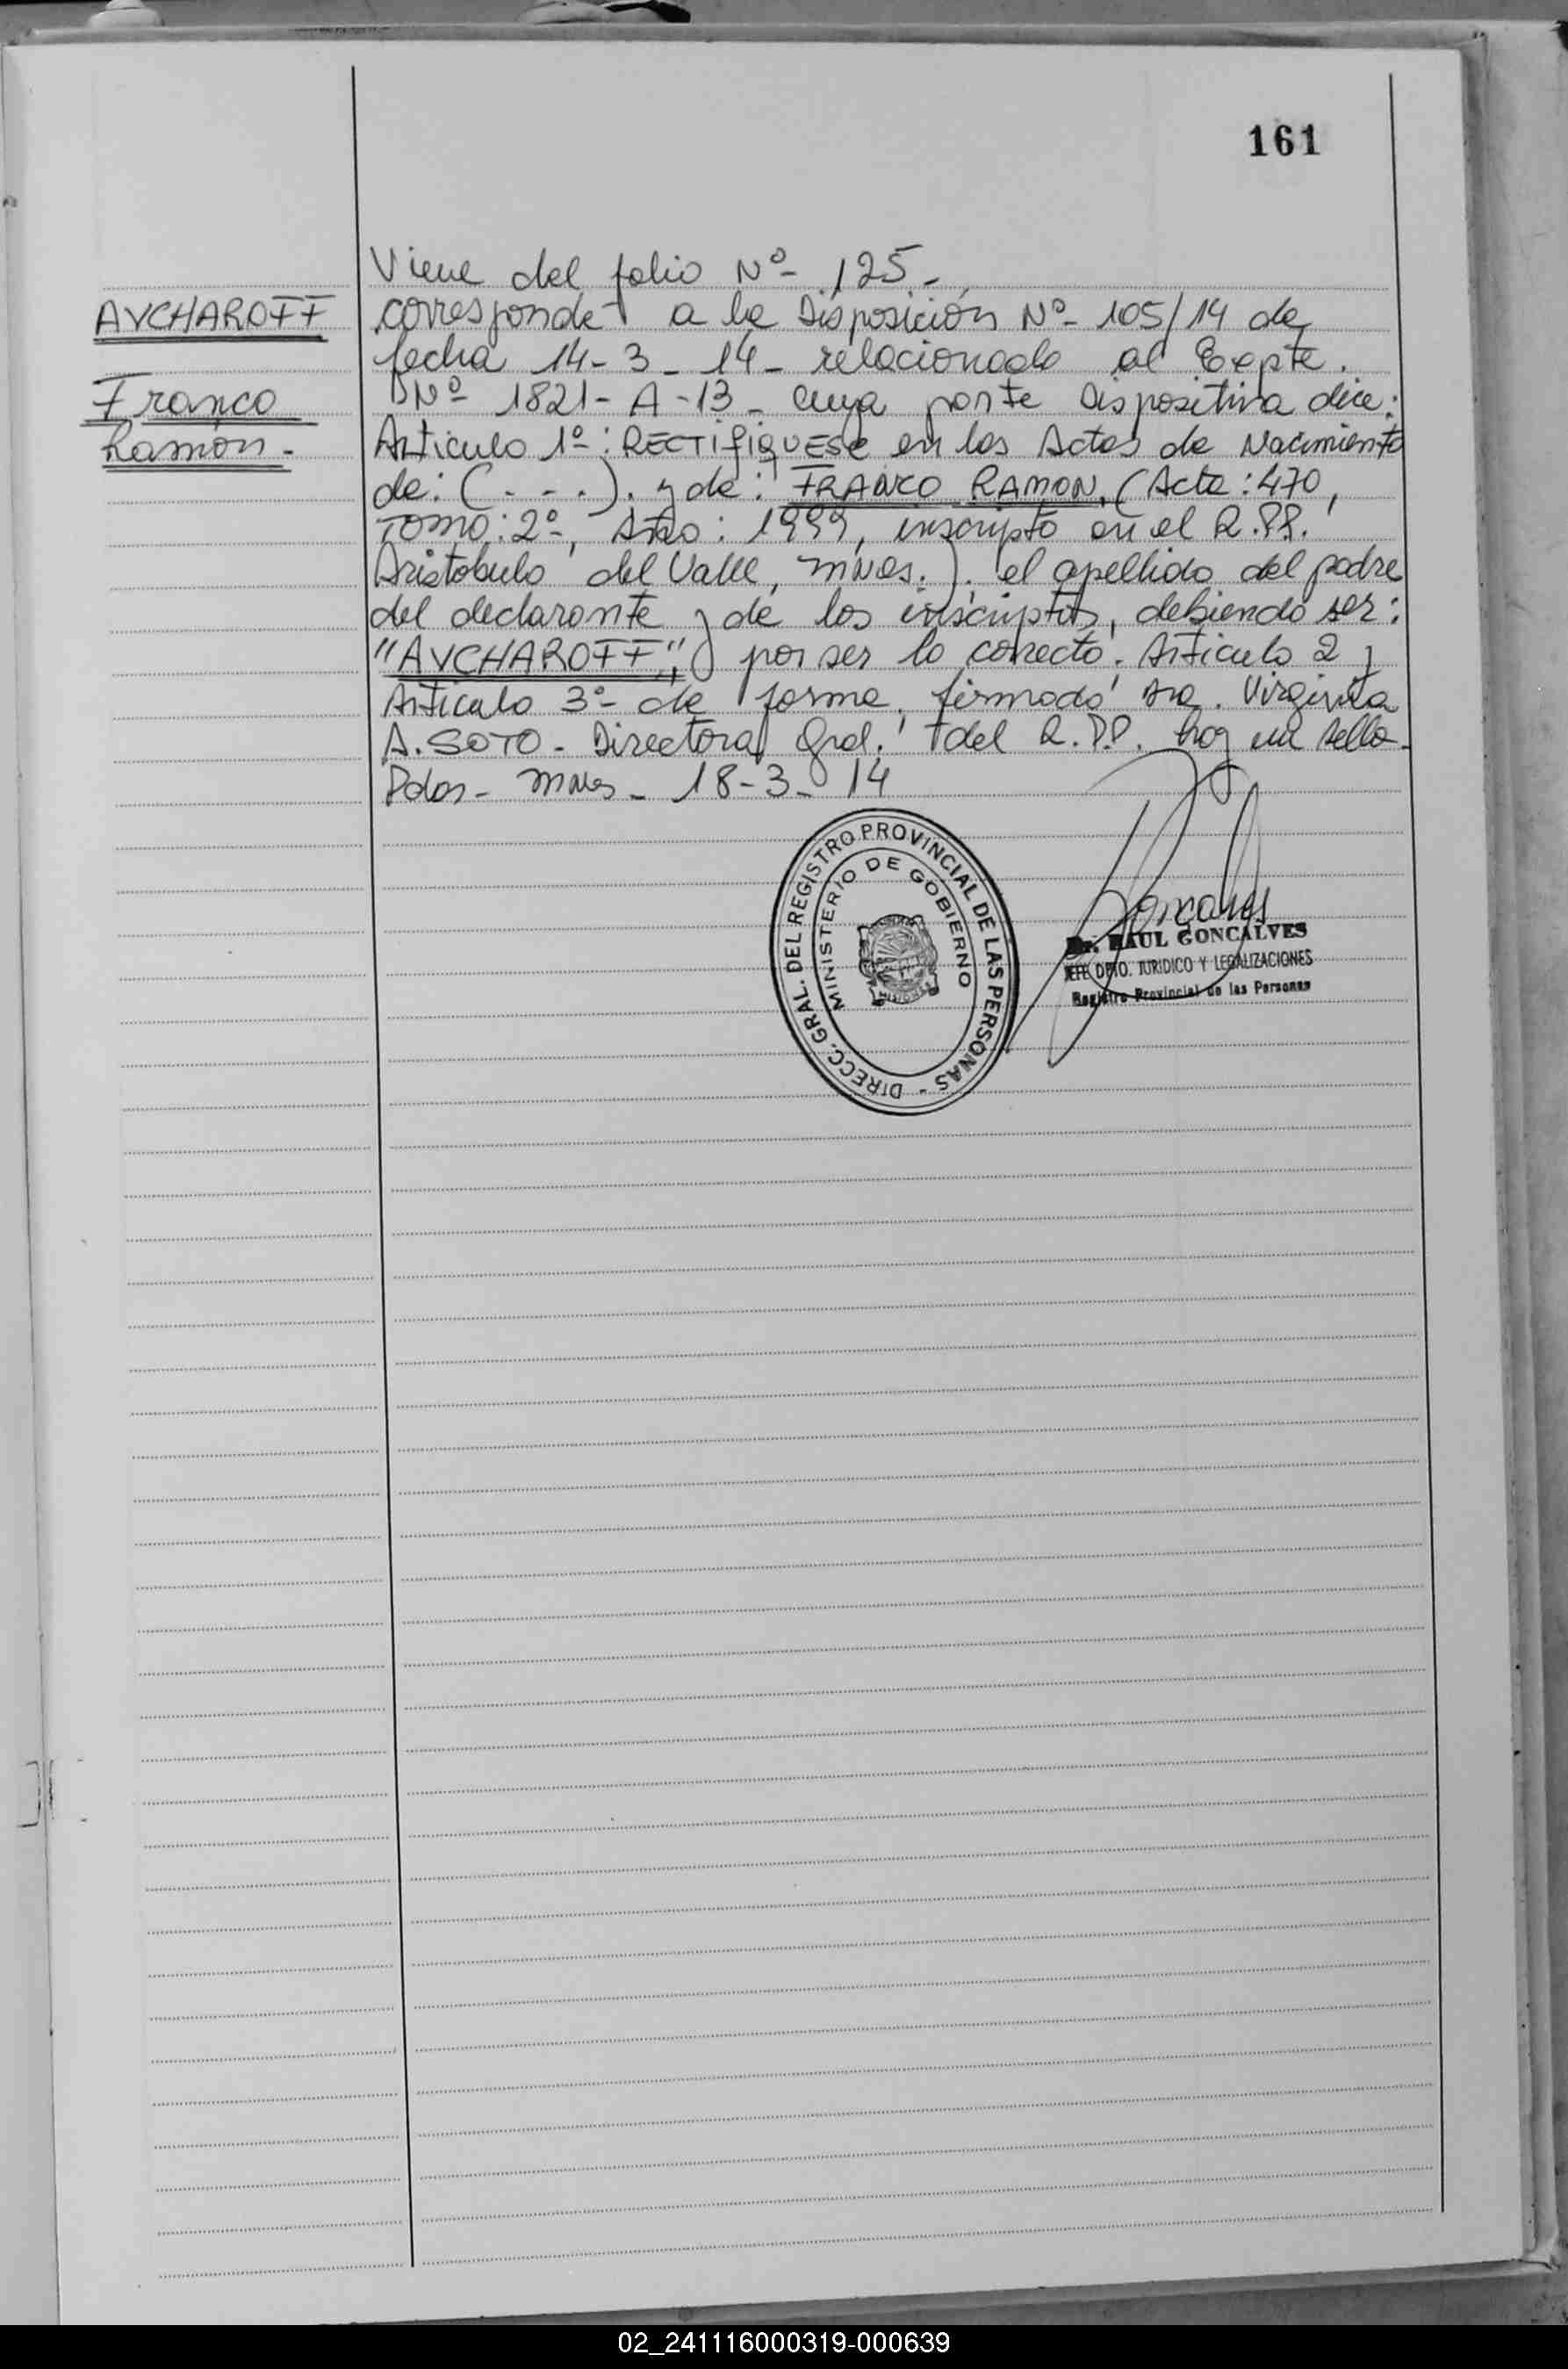 161
Viene del folio Nº- 125-
AVCHAROFF
corresponde a la Disposición Nº- 105/14 de
fecha 14-3-14- relacionado al Expte.
Franco
Nº- 1821-A-13- cuya parte Dispositiva dice:
Ramón-
Artículo 1º: RECTIFIQUESE en las Actas de Nacimiento
de: (- - -). y de: FRANCO RAMON, (Acta: 470,
Tomo: 2º, Año: 1999, inscripto en el R.P.P.
Aristobulo del Valle, Mnes.). el apellido del padre
del declarante y de los inscriptos, debiendo ser:
"AVCHAROFF", por ser lo correcto. Artículo 2 y
Artículo 3º de forma. firmado Sra. Virginia
A. SOTO- Directora Gral. del R.P.P. hay un sello-
Pdas- Mnes- 18-3-14
DIRECC. GRAL. DEL REGISTRO PROVINCIAL DE LAS PERSONAS -
MINISTERIO DE GOBIERNO
MISIONES
Goncalves
Dr. RAUL GONCALVES
JEFE DPTO. JURIDICO Y LEGALIZACIONES
Registro Provincial de las Personas
02_241116000319-000639